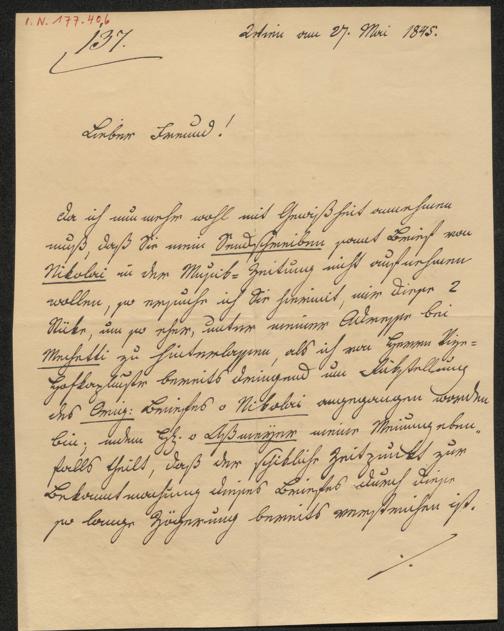 I. N. 177.406
137.
Wien am 27. Mai 1845.
Lieber Freund!
Da ich nunmehr wohl mit Gewißheit annehmen
muß daß Sie mein Sendschreiben samt Brief von
Nikolai in der Musik-Zeitung nicht aufnehmen
wollen, so ersuche ich Sie hiermit, mir diese 2
Stüke, um so eher, unter meiner Adresse bei
Mechetti zu hinterlassen, als ich von Herrn Vize-
Hofkapl bereits dringend um Rükstellung
des Orig: Briefes v Nikolai angegangen worden
bin; indem H: v Aßmayer meine Meinung eben-
falls theilt, daß der schikliche Zeitpunkt zur
Bekanntmachung dieses Briefes durch diese
so lange Zögerung bereits verstrichen ist.
./.